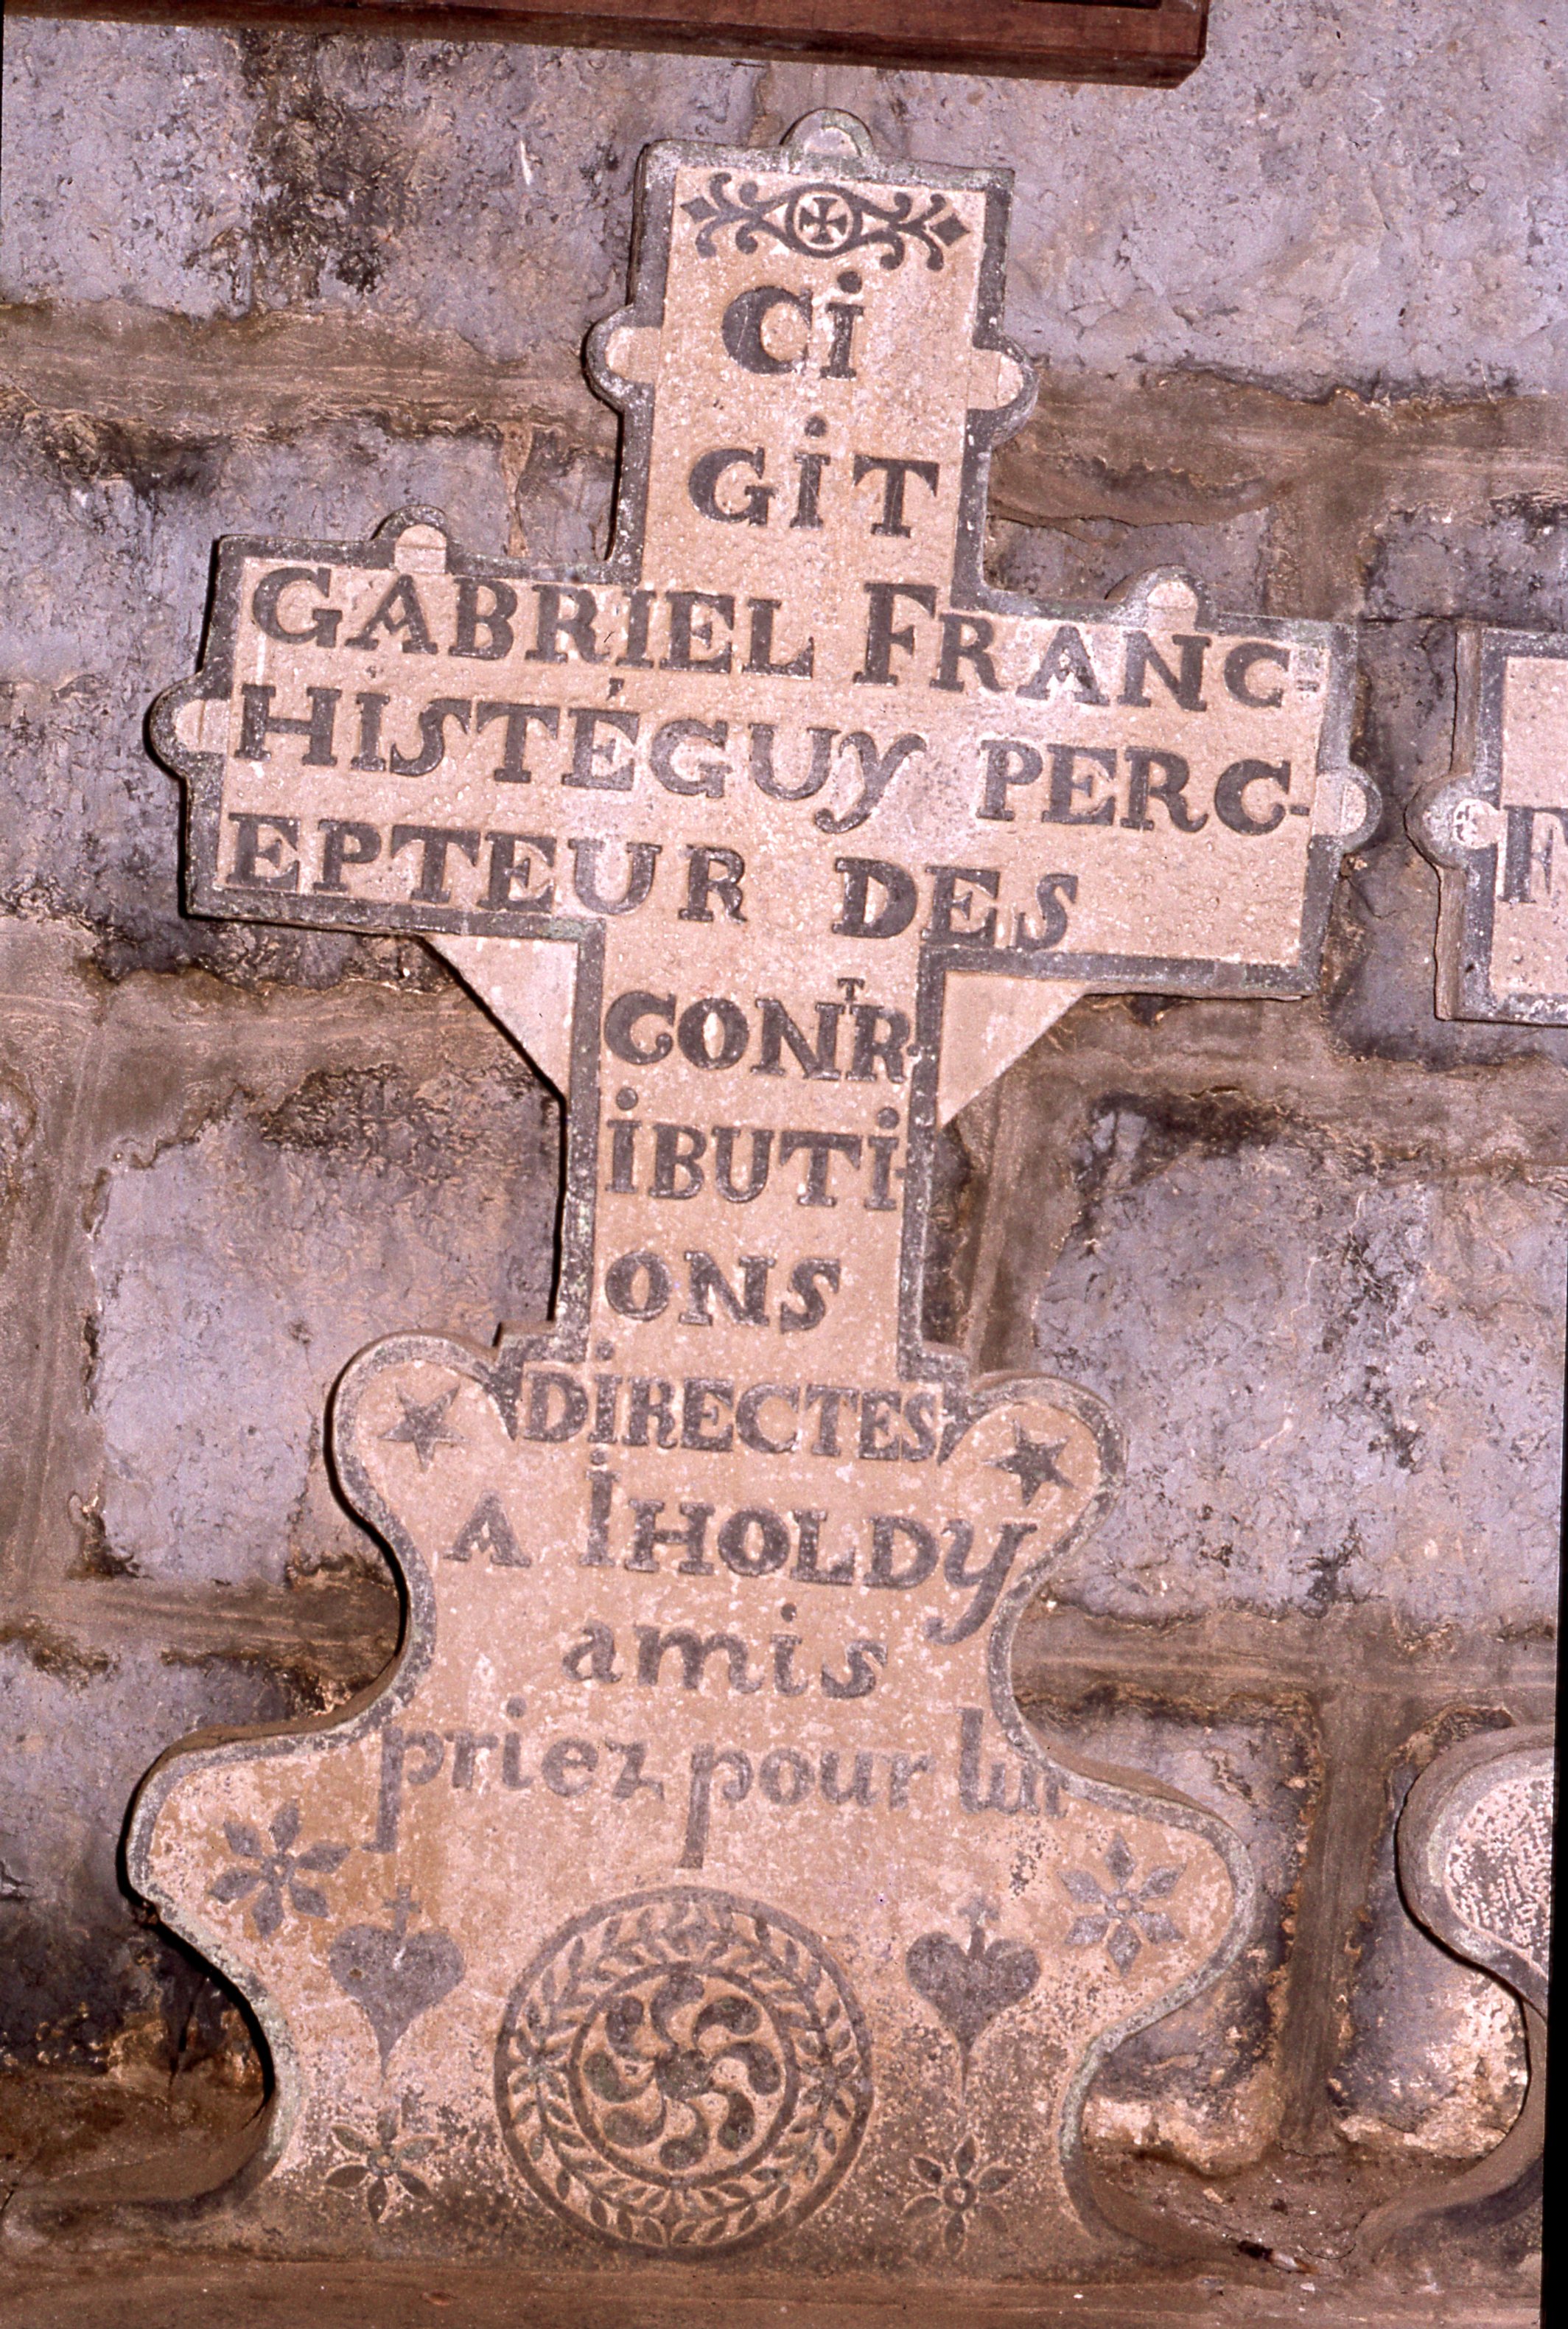 Ci
GiT
GABRIEL FRANC-
HISTÉGUY PERC-
EPTEUR DES
CONTR
iBUTi-
ONS
DiRECTES
A IHOLDY
amis
priez pour lui
F